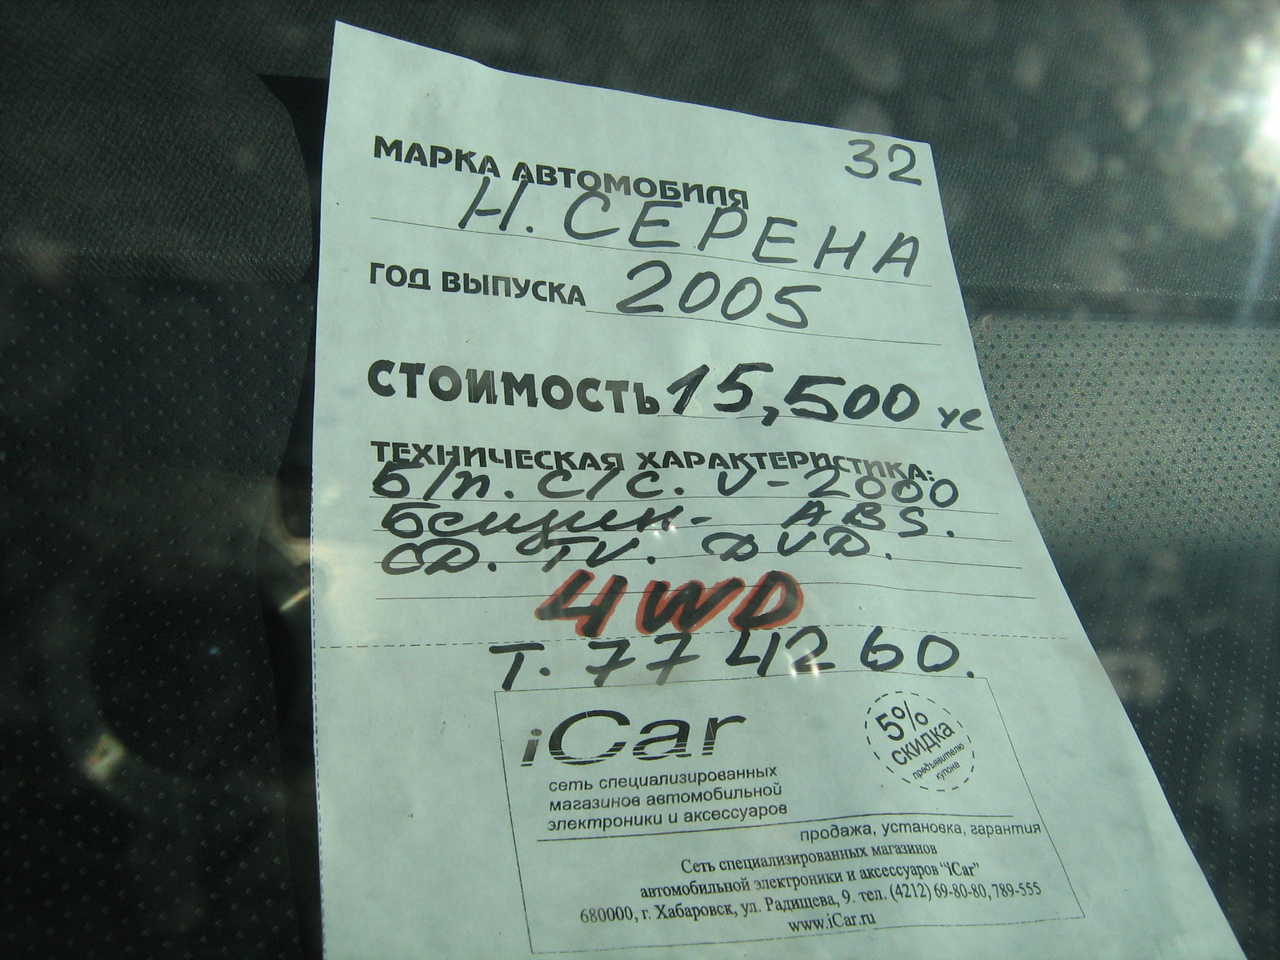 32
МАРКА АВТОМОБИЛЯ
Н. СЕРЕНА
ГОД ВЫПУСКА 2005
СТОИМОСТЬ 15,500 уе
ТЕХНИЧЕСКАЯ ХАРАКТЕРИСТИКА:
Б/п. с/с. V-2000
Бензин- ABS.
CD. TV. DVD.
4WD
Т. 77 42 60.
iCar
5%
скидка
предъявителю
купона
сеть специализированных
магазинов автомобильной
электроники и аксессуаров
продажа, установка, гарантия
Сеть специализированных магазинов
автомобильной электроники и аксессуаров "iCar"
680000, г. Хабаровск, ул. Радищева, 9. тел. (4212) 69-80-80, 789-555
www.iCar.ru